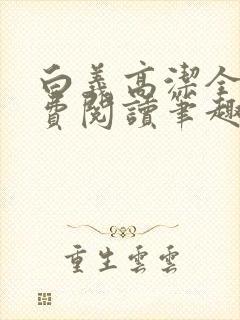 白義高潔全
費閱讀筆趣
重生雲雲